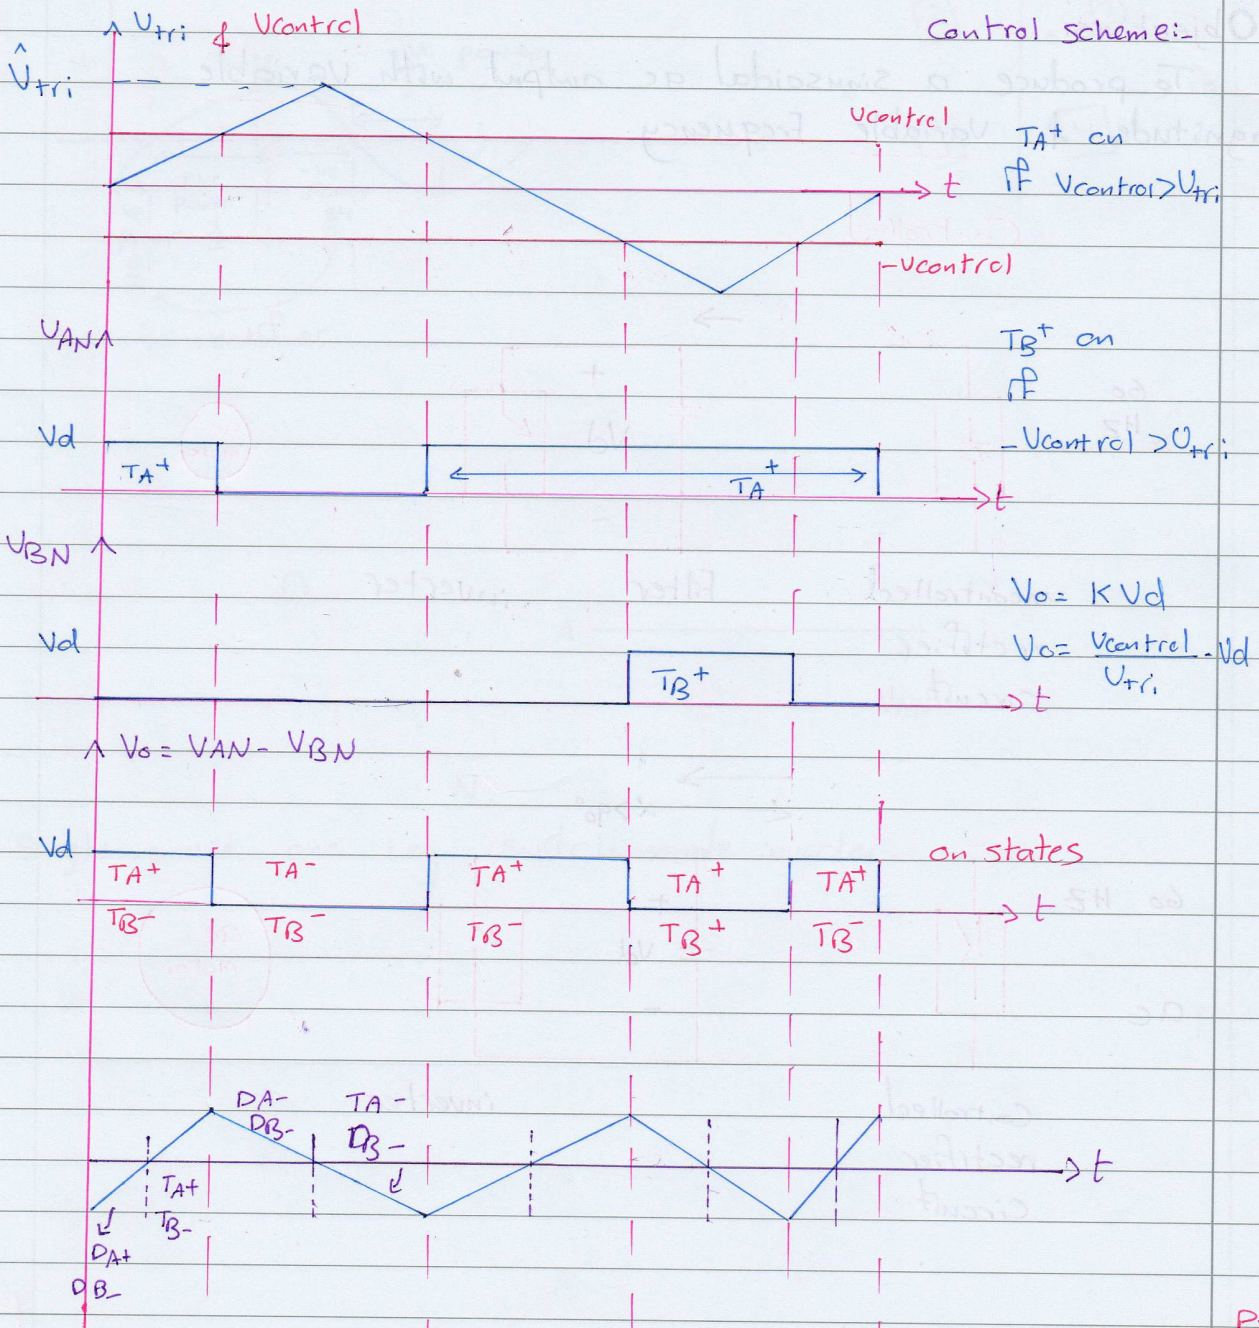 Vtri & Vcontrol
Control scheme:-
V̂tri
Vcontrol
TA+ on
if Vcontrol>Vtri
t
-Vcontrol
VAN
TB+ on
if
-Vcontrol >Vtri
Vd
TA+
TA+
t
VBN
Vo= KVd
Vo= Vcontrol/Vtri . Vd
Vd
TB+
t
Vo = VAN - VBN
Vd
TA+ TA- TA+ TA+ TA+
on states
TB- TB- TB- TB+ TB-
t
DA- TA-
DB- DB-
t
TA+
TB-
DA+
DB-